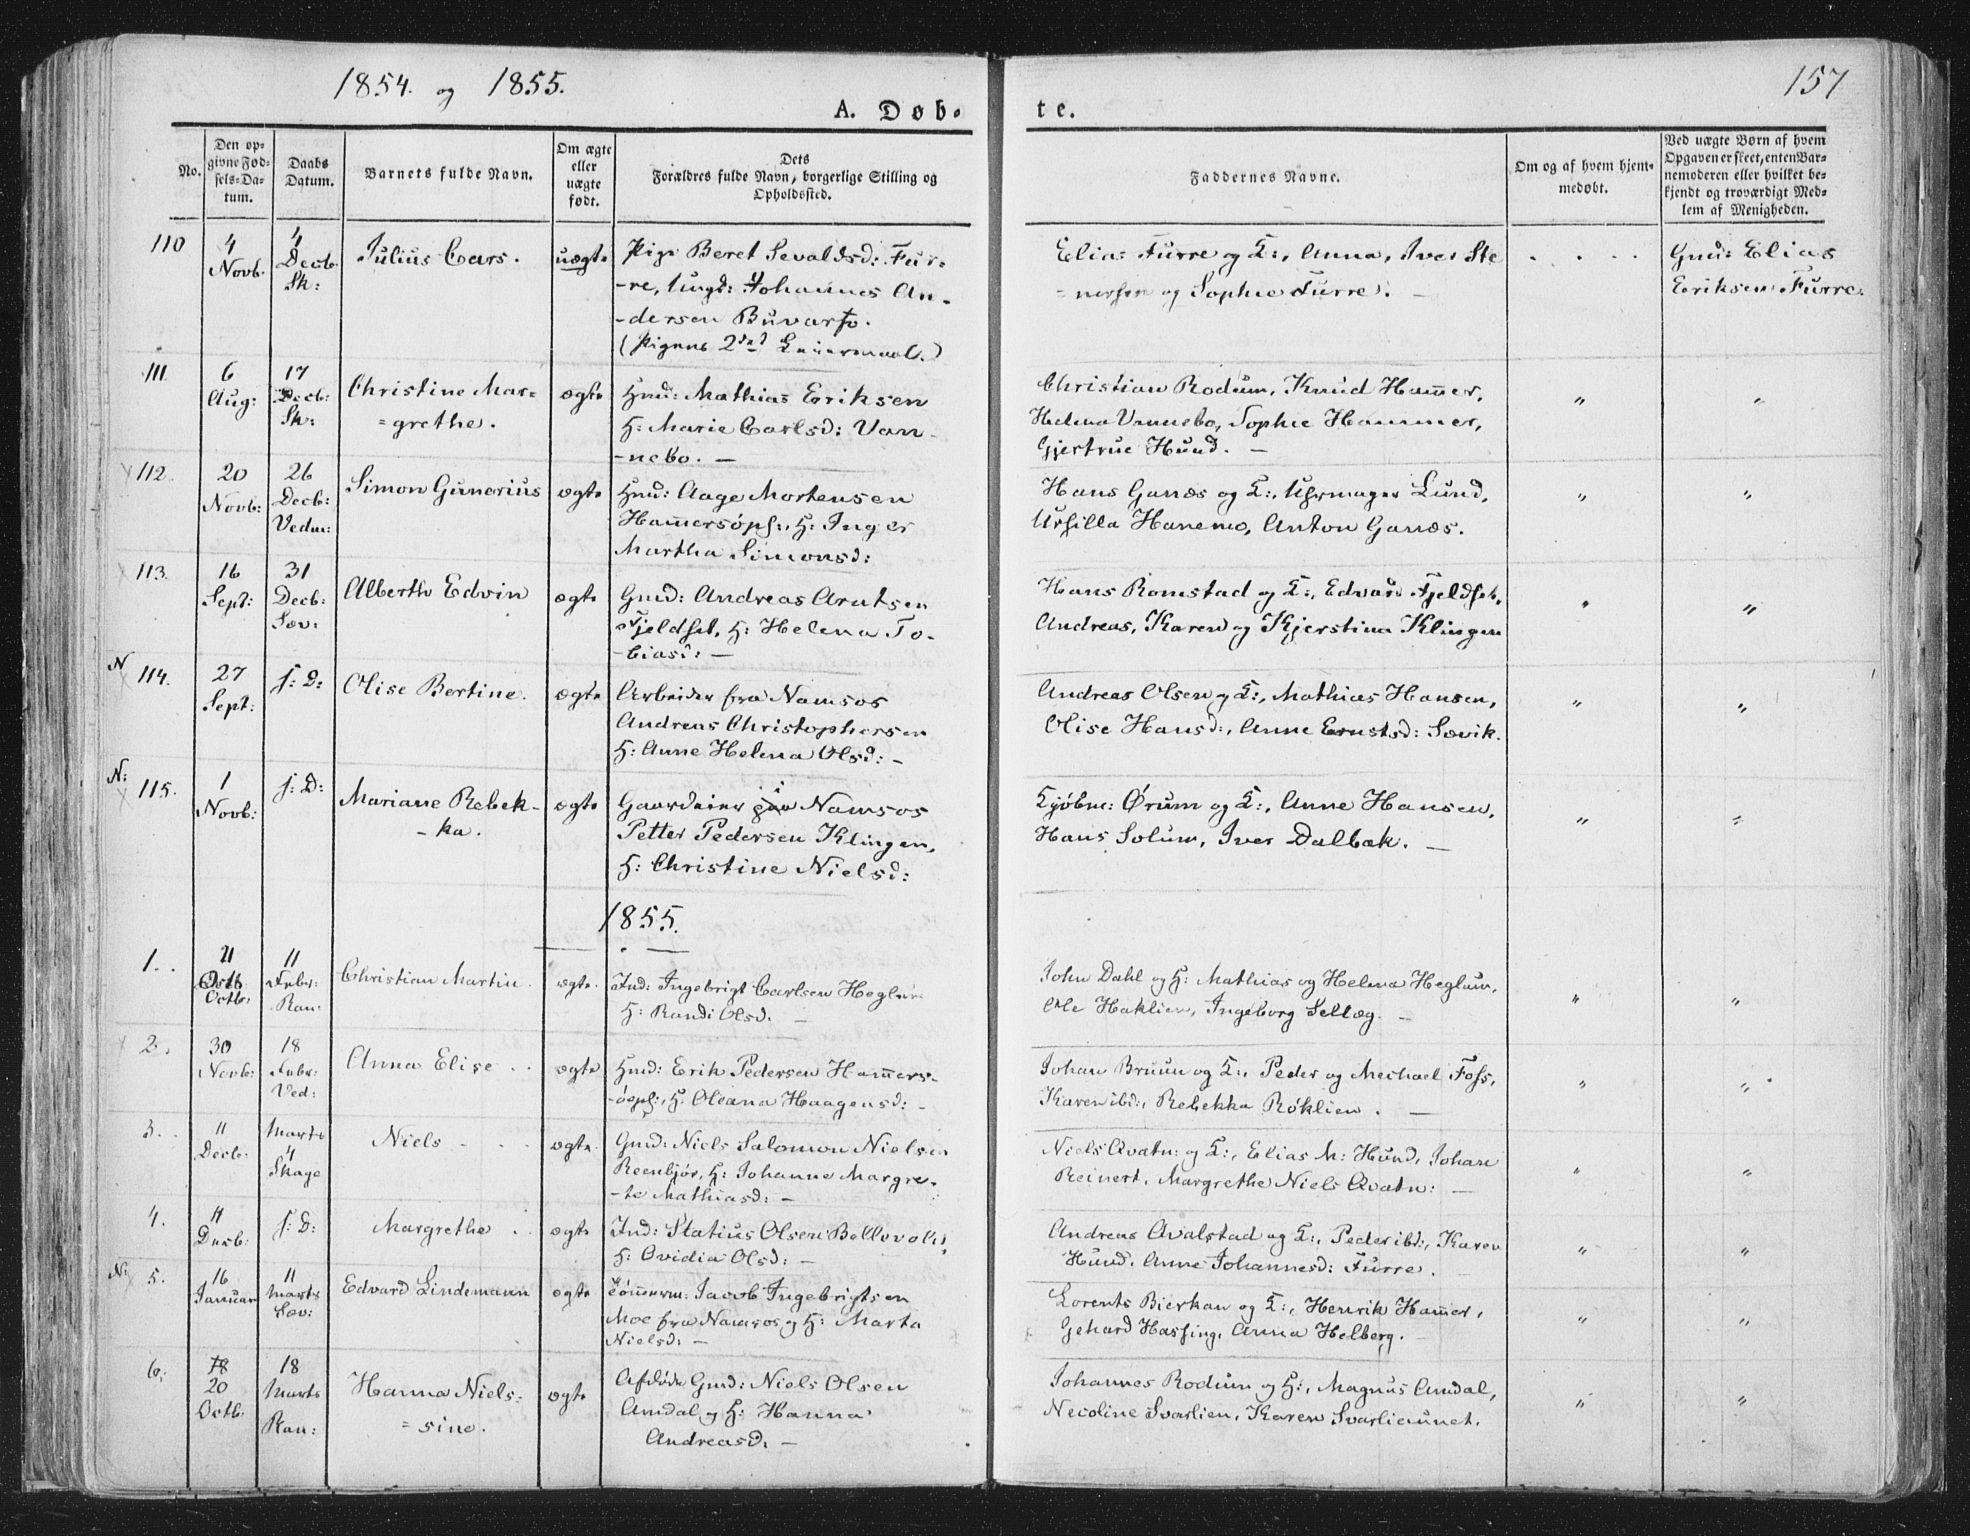 1854. og 1855.
157
A. Døb-
te.
No.
Den op-
givne Fød-
sels-Da-
tum.
Daabs
Datum.
Barnets fulde Navn.
Om ægte
eller
uægte
født.
Dets
Forældres fulde Navn, borgerlige Stilling og
Opholdssted.
Faddernes Navne.
Om og af hvem hjem-
medøbt.
Ved uægte Børn af hvem
Opgaven er skeet, enten Bar-
nemoderen eller hvilket be-
kjendt og troværdigt Med-
lem af Menigheden.
110
4
Novb.
4
Decb.
Sk:
Julius Cars.
uægte
Pige Beret Sevaldsd: Fur-
-re, Ungk: Johannes An-
-dersen Buvarp.
(Pigens 2det Leiermaal.)
Elias Furre og K:, Anna, Iver Ste
= nersen og Sophie Furre. -
Gmd: Elias
Eriksen Furre.
111.
6
Aug:
17
Decb:
Sk:
Christine Mar=
=grethe.
ægte
Hmd: Mathias Eriksen
H: Marie Carlsd: Van-
-nebo. -
Christian Rodum, Knud Hamer,
Helena Vannebo, Sophie Hammer,
Gjertrue Hund. -
"
"
112.
20
Novb:
26
Decb:
Vedm:
Simon Gunerius
ægte
Hmd: Aage Mortensen
Hamersøpl:, H: Inger
Martha Simonsd:
Hans Ganæs og K:, Uhrmager Lund,
Ursilla Hanemo, Anton Ganæs.
"
"
113.
16
Sept:
31
Decb:
Sæv:
Alberth Edvin
ægte
Gmd: Andreas Arntsen
Fjeldset, H: Helena To-
-biasd: -
Hans Romstad og K:, Edvard Fjeldset,
Andreas, Karen og Kjerstina Klingen
"
"
N
114.
27
Sept:
s: D:
Olise Bertine.
ægte
Arbeider fra Namsos
Andreas Christophersen
H: Anne Helena Olsd: -
Andreas Olsen og K:, Mathias Hansen,
Olise Hansd:, Anne Ernstsd: Sævik.
"
"
N:
115.
1
Novb:
s: D:
Mariane Rebek-
-ka.
ægte
Gaardeier i Namsos
Petter Pedersen Klingen,
H: Christine Nielsd:
Kjøbm: Ørum og K:, Anne Hansen,
Hans Solum, Iver Dalbak. -
"
"
1855.
1.
21
Octb.
11
Febr:
Ran:
Christian Martin
ægte.
Ind: Ingebrigt Carlsen Heglum
H: Randi Olsd. -
John Dahl og H: Mathias og Helena Heglum,
Ole Haklien, Ingeborg Sellæg. -
"
"
2.
30
Novb:
18
Febr:
Ved:
Anna Elise
ægte
Hmd: Erik Pedersen Hamers-
-øepl:, H. Oleana Haagensd: -
Johan Bruun og K:, Peder og Mechael Foss,
Karen ibd:, Rebekka Røklien. -
"
"
3.
11
Decb:
Marts
4
Skage
Niels
ægte.
Gmd: Niels Salomon Nielsen
Reenbjør, H: Johanne Margre-
-te Mathiasd: -
Niels Avatn: og K:, Elias M: Hund, Johan
Reinert, Margrethe Niels Avatn: -
"
"
4.
11
Decb:
s: D:
Margrethe
ægte
Ind: Statius Olsen Bellevold,
H: Ovidia Olsd: -
Andreas Avalstad og K:, Peder ibd:, Karen
Hund. Anne Johannesd: Furre.
"
"
N:
5.
16
Januar
11
Marts
Sæv:
Edvard Lindemann
ægte
Tømmerm: Jacob Ingebrigtsen
Moe fra Namsos og H: Marta
Nielsd: -
Lorents Bierkan og K:, Henrik Hamer,
Gehard Hassing, Anna Helberg.
"
"
6.
18
20
Octb.
18
Marts
Ran:
Hanna Niels=
=sine.
ægte
Afdøde Gmd: Niels Olsen
Amdal og H: Hanna
Andreasd. -
Johannes Rodum og H:, Magnus Amdal,
Necoline Svarlien, Karen Svarliaunet.
"
"